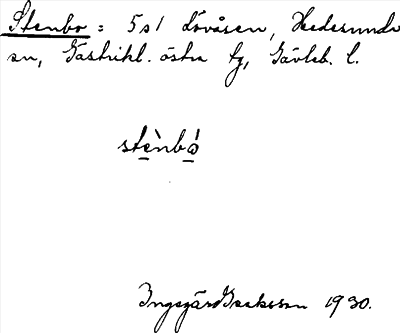 Stenbo : 5 s/ Lövåsen, Hedesunda
sn, Gästrikl. östra tg, Gävleb. l.
stènbó
Ingegärd Isaksson 1930.